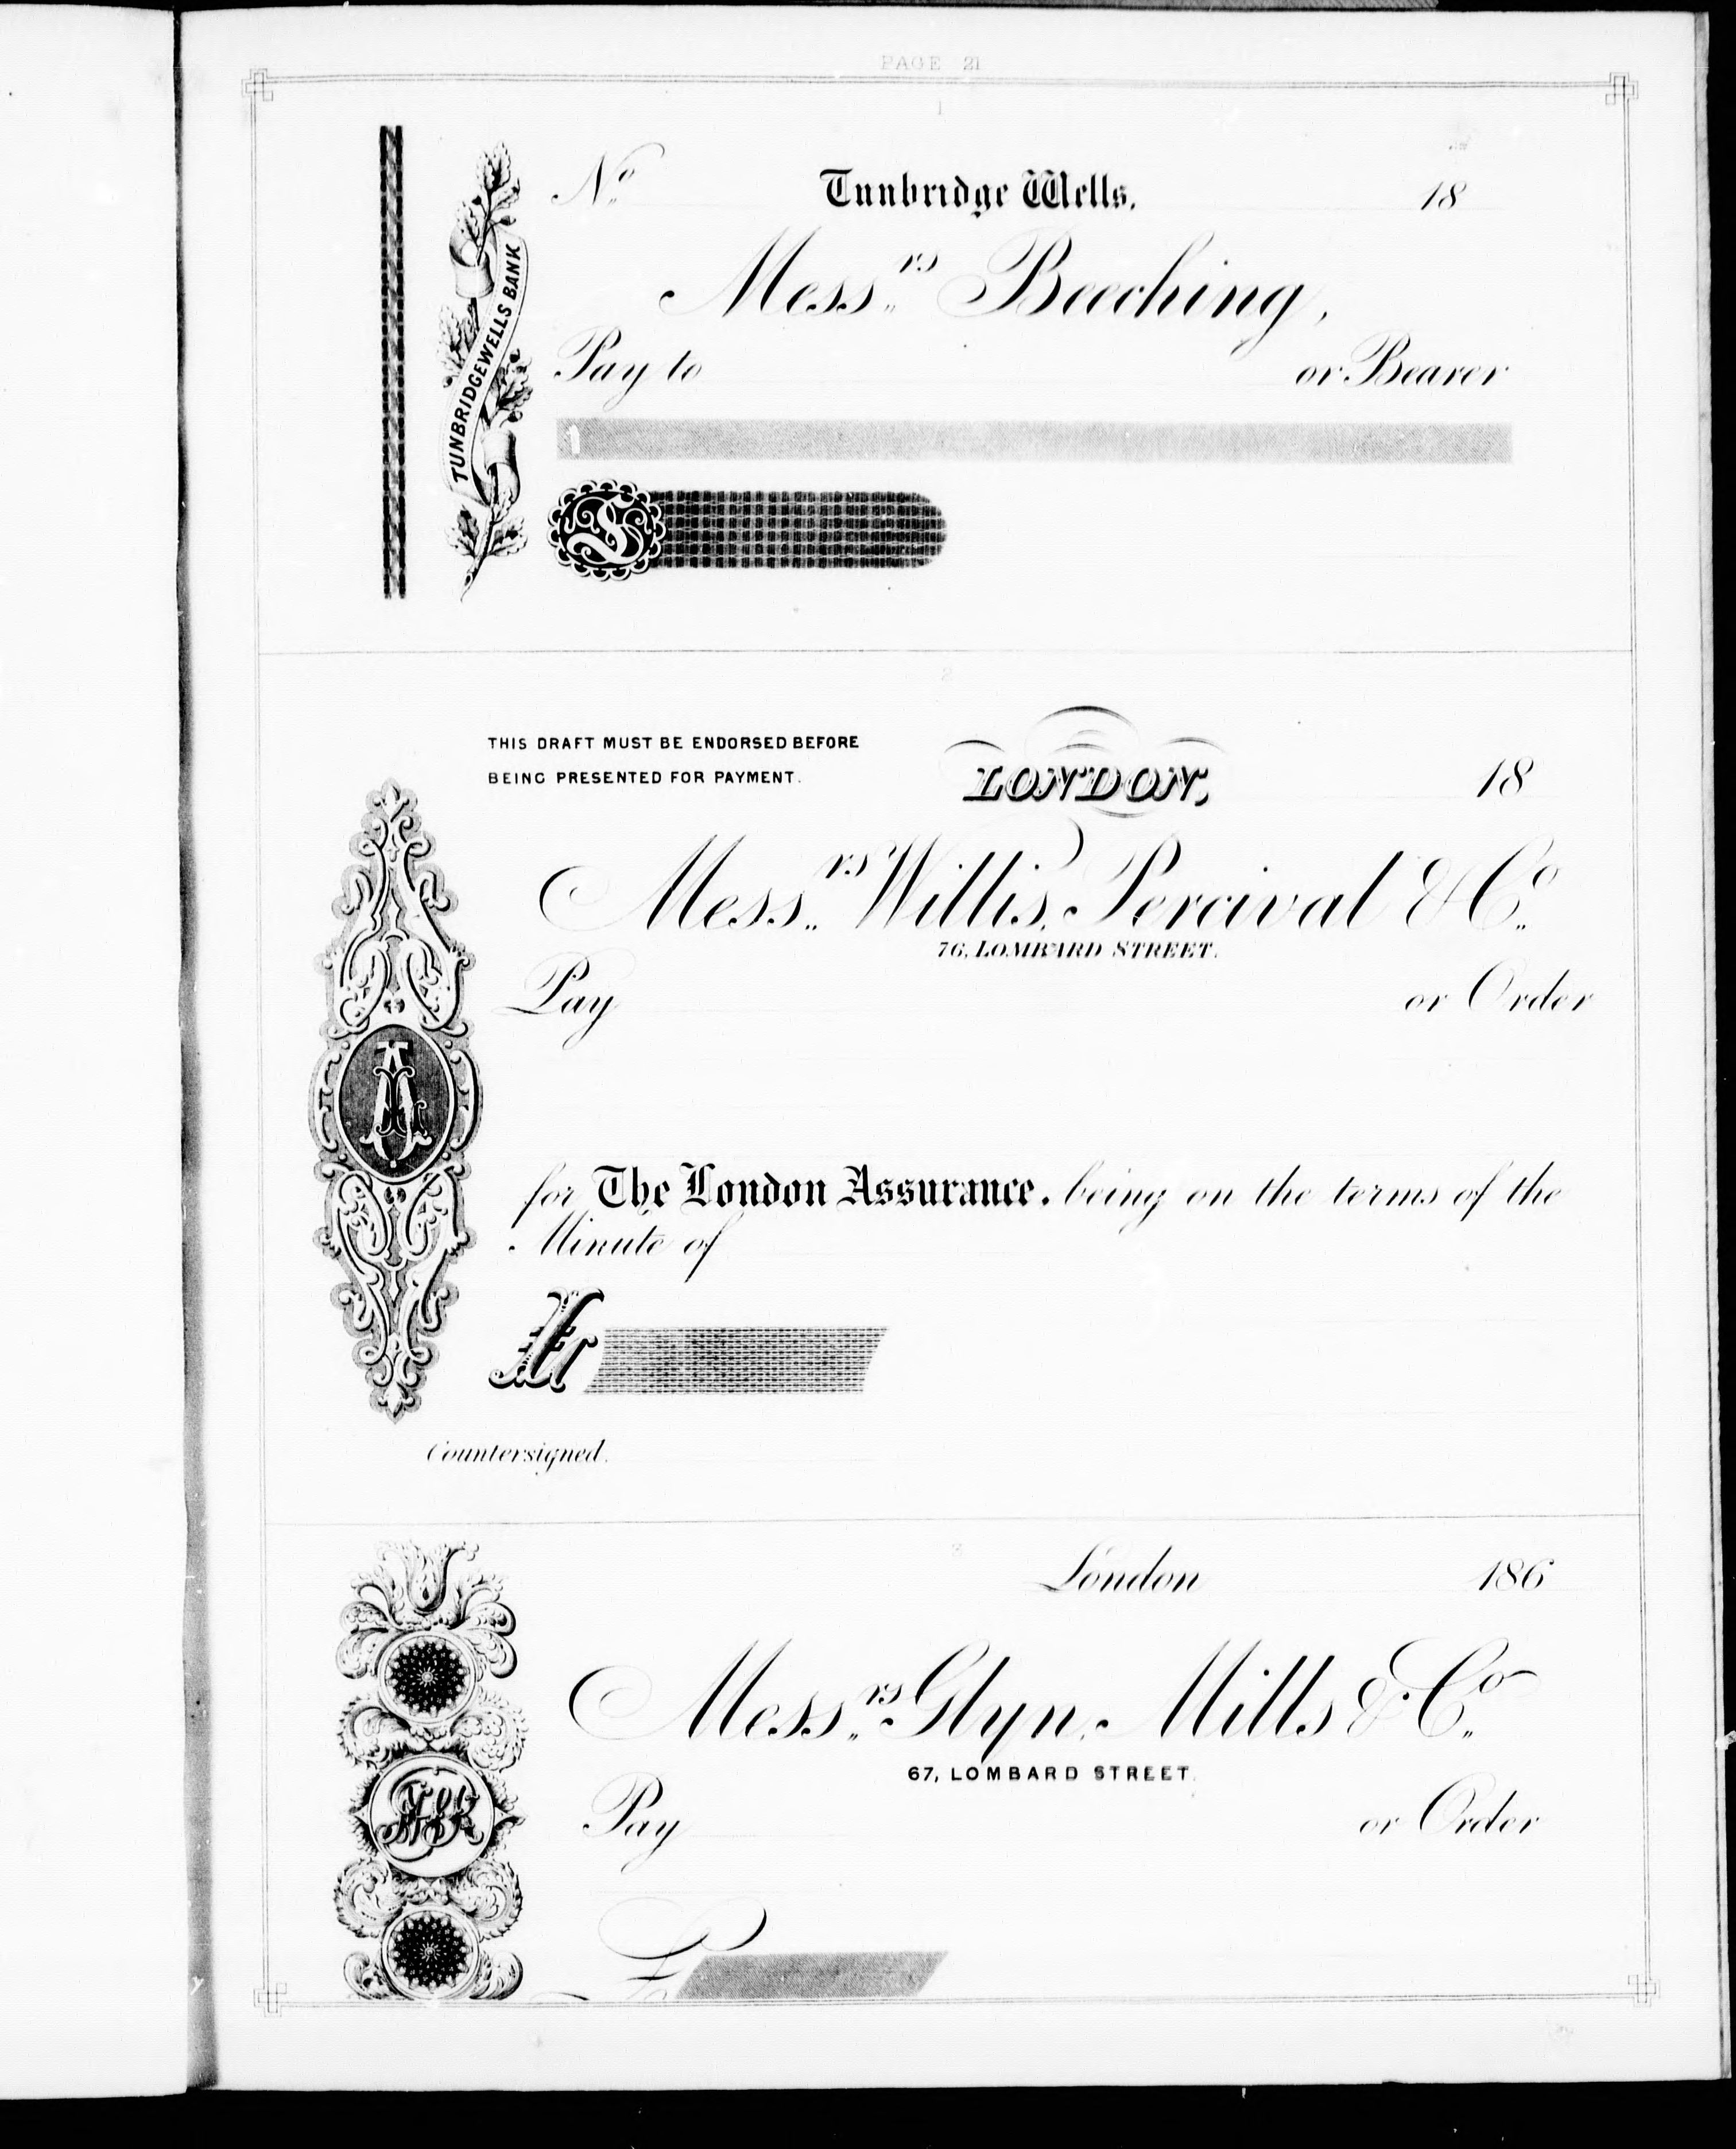 PAGE 21
1
No. Tunbridge Wells, 18
TUNBRIDGE WELLS BANK
Messrs. Beeching,
Pay to or Bearer
£
2
THIS DRAFT MUST BE ENDORSED BEFORE
BEING PRESENTED FOR PAYMENT.
LONDON, 18
Messrs. Willis, Percival & Co.
76, LOMBARD STREET.
Pay or Order
for The London Assurance, being on the terms of the
Minute of
£
Countersigned.
3
London 186
Messrs. Glyn, Mills & Co.
67, LOMBARD STREET.
Pay or Order
£